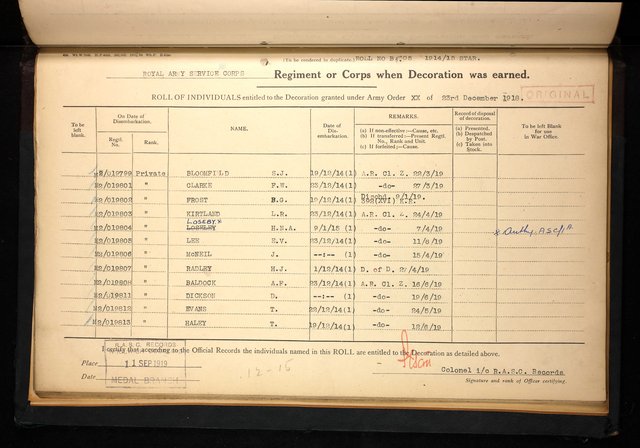 (To be rendered in duplicate.) ROLL NO 1914/15 STAR.
ROYAL ARMY SERVICE CORPS Regiment or Corps when Decoration was earned.
ROLL OF INDIVIDUALS entitled to the Decoration granted under Army Order XX of 23rd December 1918.
ORIGINAL
To be left blank.
On Date of Disembarkation.
Regtl. No.
Rank.
NAME.
Date of Disembarkation.
REMARKS.
(a) If non-effective:—Cause, etc.
(b) If transferred:—Present Regtl. No., Rank and Unit.
(c) If forfeited;—Cause.
Record of disposal of decoration.
(a) Presented.
(b) Despatched by Post.
(c) Taken into Stock.
To be left Blank for use in War Office.
M2/019799 Private BLOOMFILD S.J. 19/12/14(1) A.R. Cl. Z. 22/3/19
M2/019801 " CLARKE F.W. 23/12/14(1) -do- 27/3/19
M2/019802 " FROST B.G. 19/12/14(1) Dischd. 9/1/19. 392(XVI) K.R.
M2/019803 " KIRTLAND L.R. 23/12/14(1) A.R. Cl. Z. 24/4/19
LOSEBY
M2/019804 " H.N.A. 9/1/15 (1) -do- 7/4/19 x Auth:
M2/019805 " LEE E.V. 23/12/14(1) -do- 11/6/19
M2/019806 " McNEIL J. --:-- (1) -do- 15/4/19
M2/019807 " RADLEY H.J. 1/12/14(1) D. of D. 27/4/19
M2/019808 " BALDOCK A.F. 23/12/14(1) A.R. Cl. Z. 16/6/19
M2/019811 " DICKSON D. --:-- (1) -do- 19/6/19
M2/019812 " EVANS T. 22/12/14(1) -do- 24/5/19
M2/019813 " HALEY T. 19/12/14(1) -do- 12/6/19
I certify that according to the Official Records the individuals named in this ROLL are entitled to the Decoration as detailed above.
R.A.S.C. RECORDS
11 SEP 1919
MEDAL BRANCH
Place
Date
12-16
Colonel i/c R.A.S.C. Records
Signature and rank of Officer certifying.